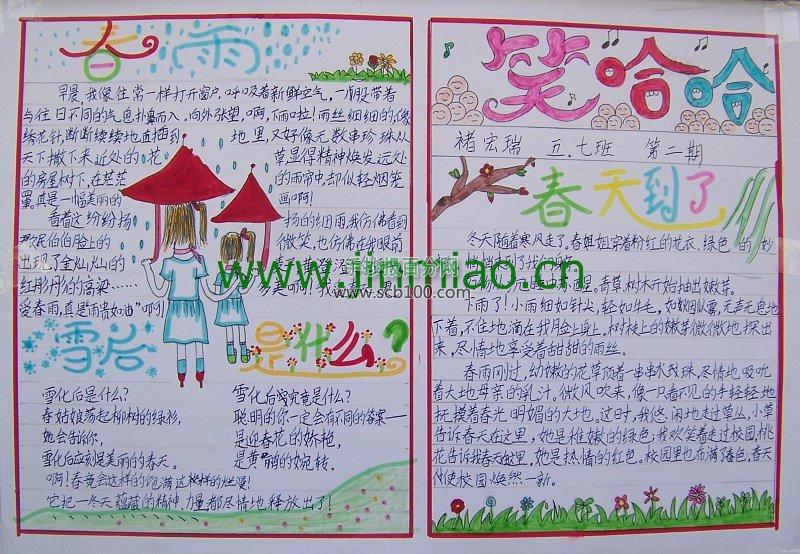 春雨
早晨,我像往常一样打开窗户,呼吸着新鲜空气,一阵股带着
与往日不同的气息扑鼻而入,向外张望,啊,下雨啦!雨丝细细的,像
绣花针,断断续续地直插到地里,又好像无数串珍珠从
天下撒下来近处的花草显得精神焕发远处
的房屋树下,在茫茫的雨帘中,却似轻烟笼
罩。真是一幅美丽的画啊!
看着这纷纷扬扬的细雨,我仿佛看到
农民伯伯脸上的微笑,也仿佛在我眼前
出现了金灿灿的
红彤彤的高粱……
受春雨,真是“雨贵如油”啊!
雪后是什么?
雪化后是什么?
春姑娘荡起柳树的绿衫,
她会告诉你,
雪化后应刻是美丽的春天。
雪化后究竟是什么?
聪明的你一定会有不同的答案——
是迎春花的娇艳,
是黄鹂的婉转。
啊!春竟会这样的饱满这样的烂漫!
它把一冬天蕴藏的精神、力量都尽情地释放出了!
笑哈哈
褚宏瑞 五.七班 第二期
春天到了
冬天随着寒风走了。春姐姐穿着粉红的花衣、绿色的纱
青草树木开始抽出嫩芽。
下雨了!小雨细如针尖,轻如牛毛,如烟似雾,无声无息地
下着,不住地滴在我脸上身上。树枝上的嫩芽微微地探出
来,尽情地享受着甜甜的雨丝。
春雨刚过,幼嫩的花草顶着一串串水珠,尽情地吸吮
着大地母亲的乳汁。微风吹来,像一只看不见的手轻轻地
抚摸着春光明媚的大地。这时,我悠闲地走过草丛,小草
告诉春天在这里,她是稚嫩的绿色;我欢笑着走过校园,桃
花告诉我春天在这里,她是热情的红色。校园里也布满了春色,春天
使校园焕然一新。
手抄报百分网
www.scb100.com
www.jinmiao.cn